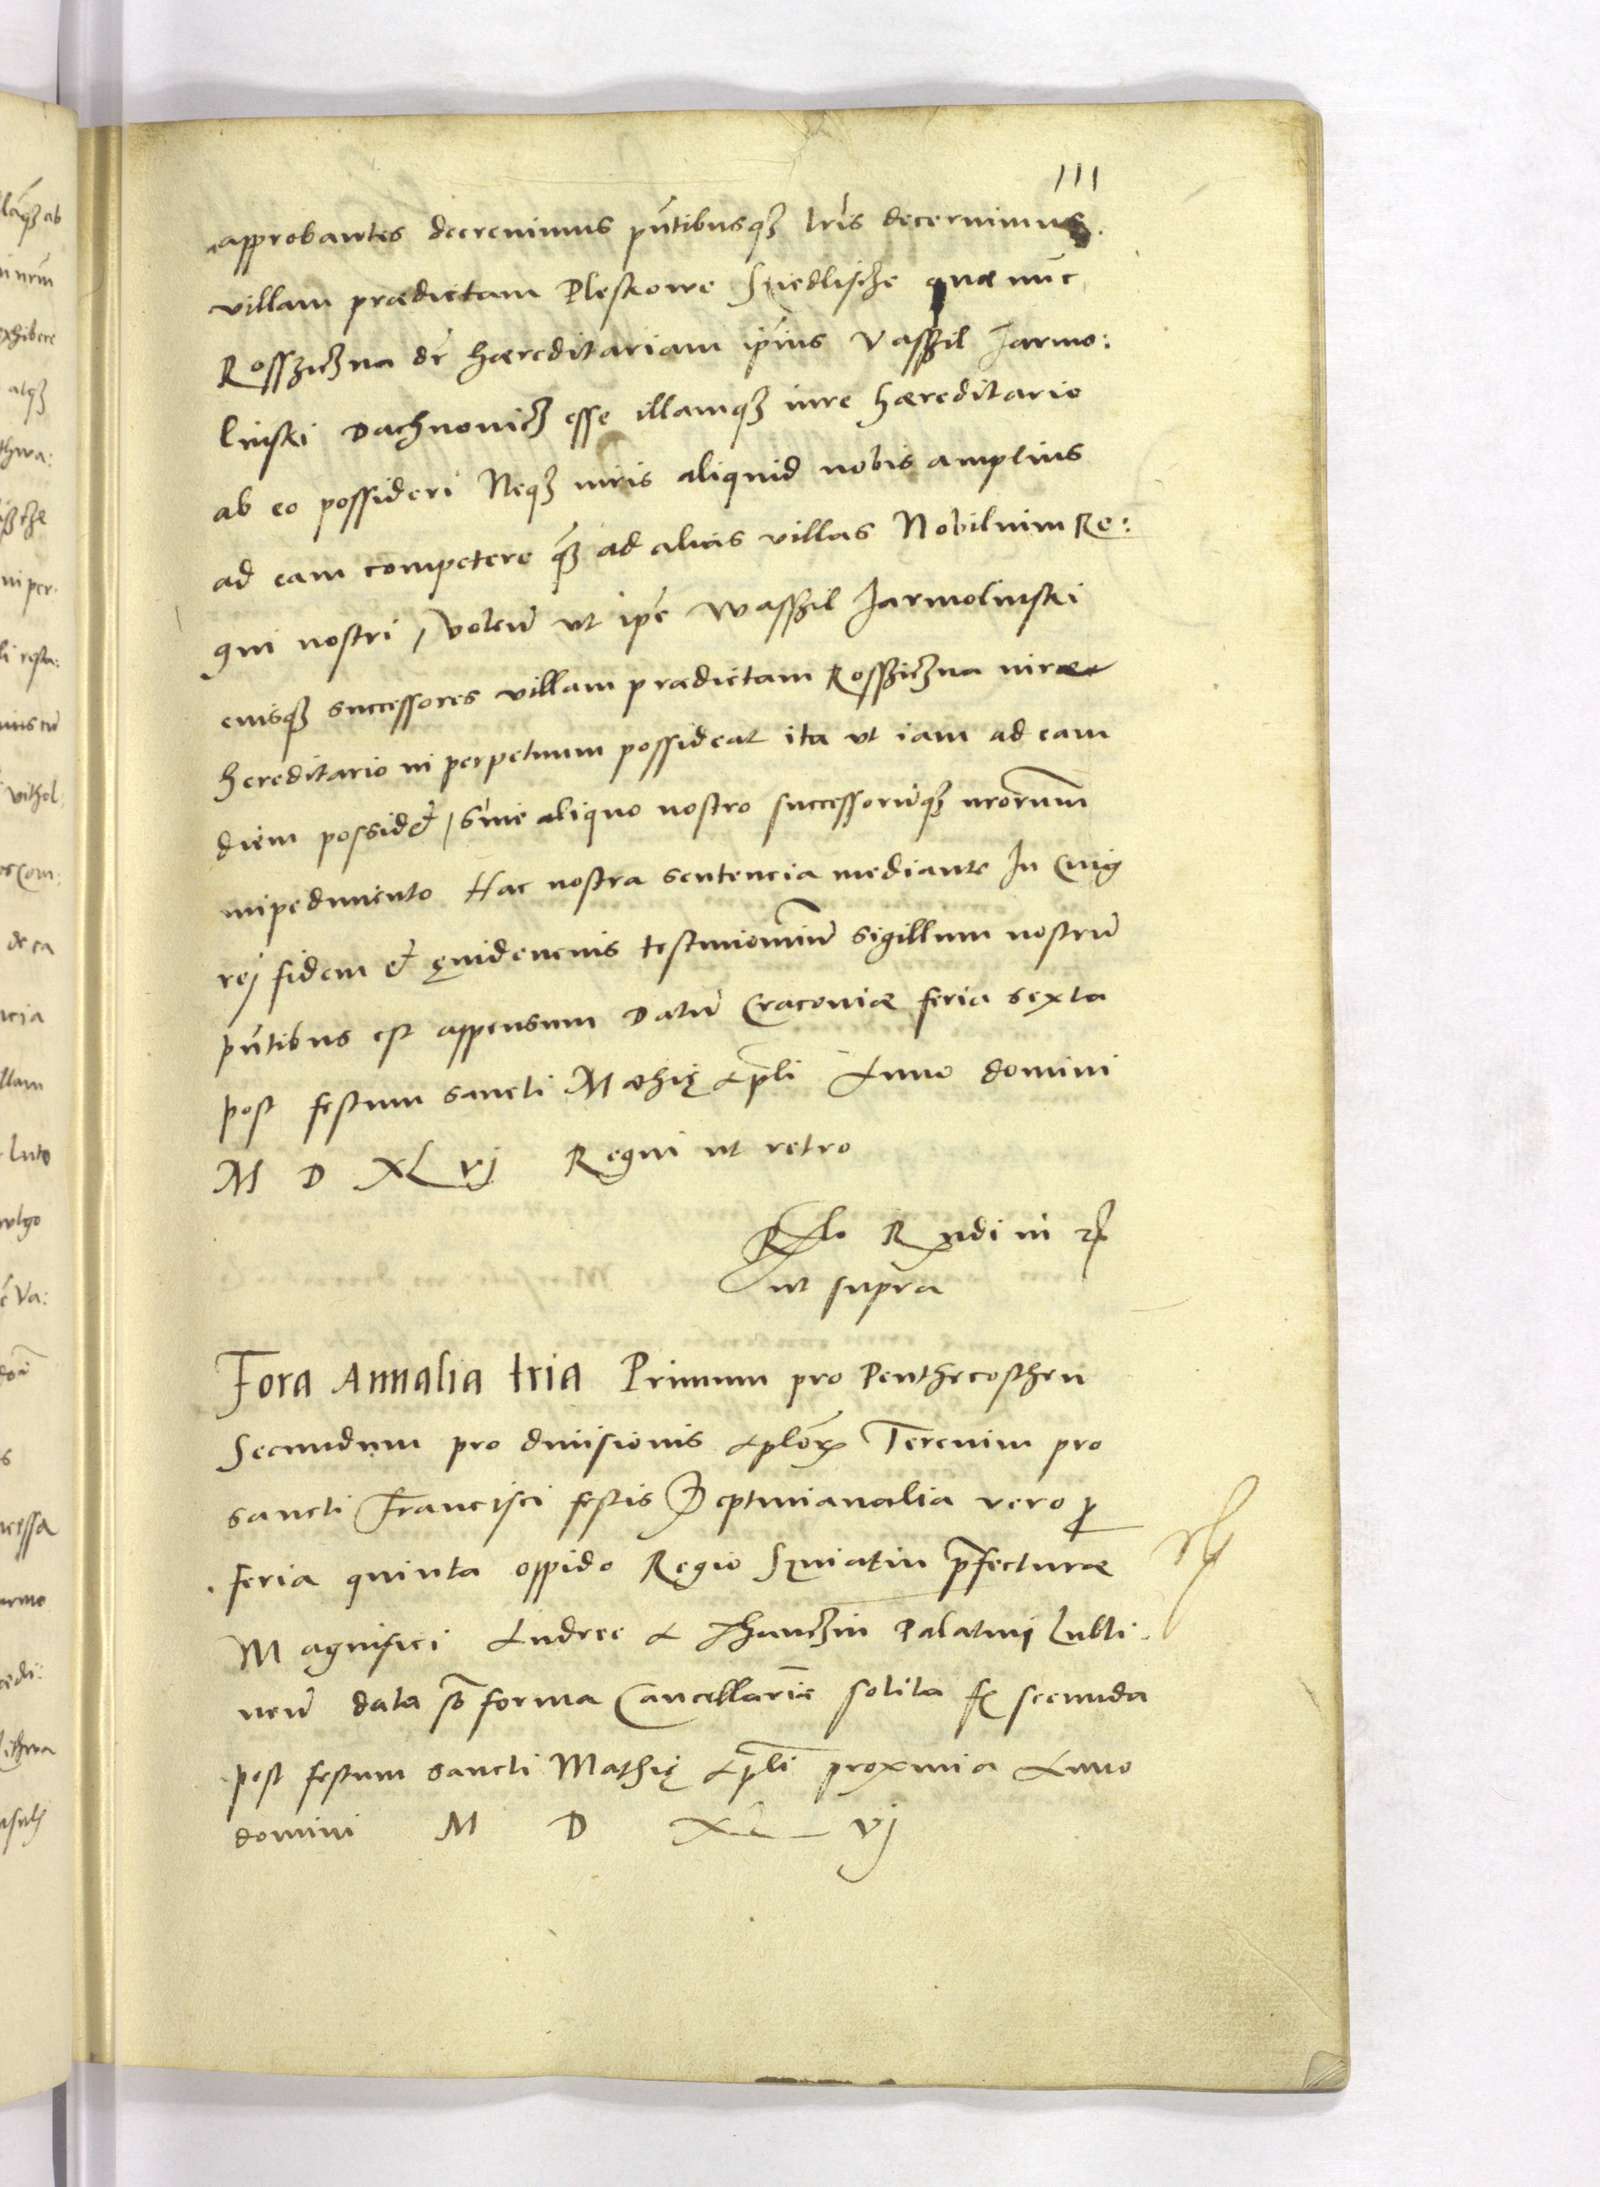 111
approbantes decrevimus pn̄tibusqꝫ lr̄is decernimus.
villam prædictam Pleskowe Siedlische quæ nūc
Rossziczna dr̄ hæreditariam ip̄ius Vasszil Jarmo:
linski Dachnovicz esse illamqꝫ iure hæreditario
ab eo possideri Neqꝫ iuris aliquid nobis amplius
ad eam competere q̄ꝫ ad alias villas Nobilium Re:
gni nostri, volen̄ ut ip̄e Wasszil Jarmolinski
eiusqꝫ successores villam prædictam Rossziczna iure
hereditario in perpetuum possideat ita ut iam ad eam
diem possidet, sine aliquo nostro successorūqꝫ nrōrum
impedimento Hac nostra sentencia mediante In Cuiꝯ
rej fidem et evidencius testimonium sigillum nostrū
pn̄tibus est appensum Datū Cracoviæ feria sexta
post festum sancti Mathię Ap̄li Anno domini
M D XL vj Regni ut retro
Rlo Rndi in
ut supra
Fora Annalia tria Primum pro Penthecosthen
Secundum pro divisionis Aplōꝝ Tercium pro
sancti Francisci festis Septimanalia vero ꝓ
feria quinta oppido Regio Sniatin p̄fecturæ
Magnifici Andree A Thanczin Palatini Lubli
nen̄ data s̄b forma Cancellariæ solita fe secunda
post festum sancti Mathię Ap̄li proxima Anno
domini M D XL vj